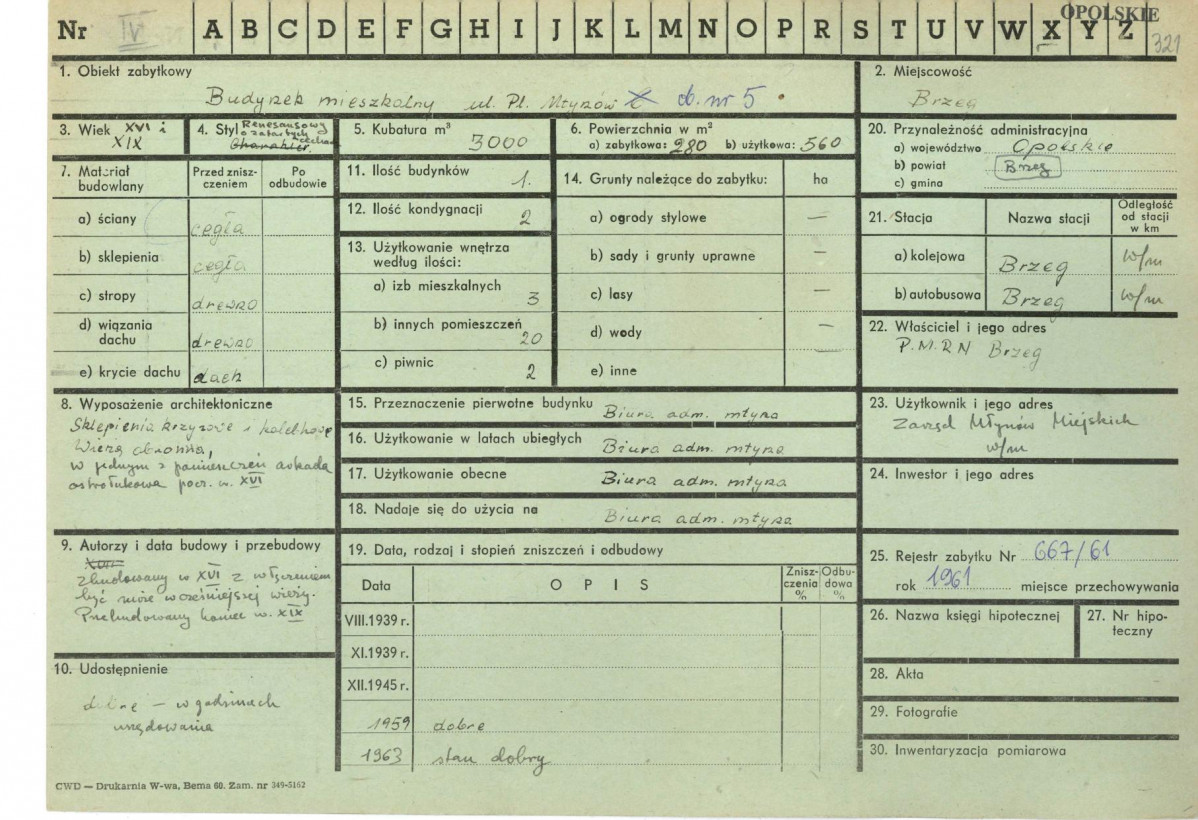 Nr IV A B C D E F G H I J K L M N O P R S T U V W X Y Z OPOLSKIE
321
1. Obiekt zabytkowy
Budynek mieszkalny ul. Pl. Młynów d. nr 5
2. Miejscowość
Brzeg
3. Wiek XVI i
XIX
4. Styl Renesansowy
o zatartych cechach
Charakter.
5. Kubatura m³
3000
6. Powierzchnia w m²
a) zabytkowa: 280 b) użytkowa: 560
20. Przynależność administracyjna
a) województwo Opolskie
b) powiat Brzeg
c) gmina
7. Materiał
budowlany
Przed znisz-
czeniem
Po
odbudowie
a) ściany cegła
b) sklepienia cegła
c) stropy drewno
d) wiązania
dachu drewno
e) krycie dachu dach
11. Ilość budynków 1.
12. Ilość kondygnacji 2
13. Użytkowanie wnętrza
według ilości:
a) izb mieszkalnych 3
b) innych pomieszczeń 20
c) piwnic 2
14. Grunty należące do zabytku: ha
a) ogrody stylowe —
b) sady i grunty uprawne —
c) lasy —
d) wody —
e) inne
21. Stacja Nazwa stacji
Odległość
od stacji
w km
a) kolejowa Brzeg w/m
b) autobusowa Brzeg w/m
22. Właściciel i jego adres
P.M.R.N Brzeg
8. Wyposażenie architektoniczne
Sklepienia krzyżowe i kolebkowe
Wieża obronna,
w jednym z pomieszczeń arkada
ostrołukowa pocz. w. XVI
15. Przeznaczenie pierwotne budynku Biura adm. młyna
16. Użytkowanie w latach ubiegłych Biura adm. młyna
17. Użytkowanie obecne Biura adm. młyna
18. Nadaje się do użycia na Biura adm. młyna
23. Użytkownik i jego adres
Zarząd Młynów Miejskich
w/m
24. Inwestor i jego adres
9. Autorzy i data budowy i przebudowy
XVIII
Zbudowany w XVI z włączeniem
być może wcześniejszej wieży.
Przebudowany koniec w. XIX
10. Udostępnienie
dobre — w godzinach
urzędowania
19. Data, rodzaj i stopień zniszczeń i odbudowy
Data O P I S
Znisz-
czenia
%
Odbu-
dowa
%
VIII.1939 r.
XI.1939 r.
XII.1945 r.
1959 dobre
1963 stan dobry
25. Rejestr zabytku Nr 667/61
rok 1961 miejsce przechowywania
26. Nazwa księgi hipotecznej
27. Nr hipo-
teczny
28. Akta
29. Fotografie
30. Inwentaryzacja pomiarowa
CWD — Drukarnia W-wa, Bema 60. Zam. nr 349-5162